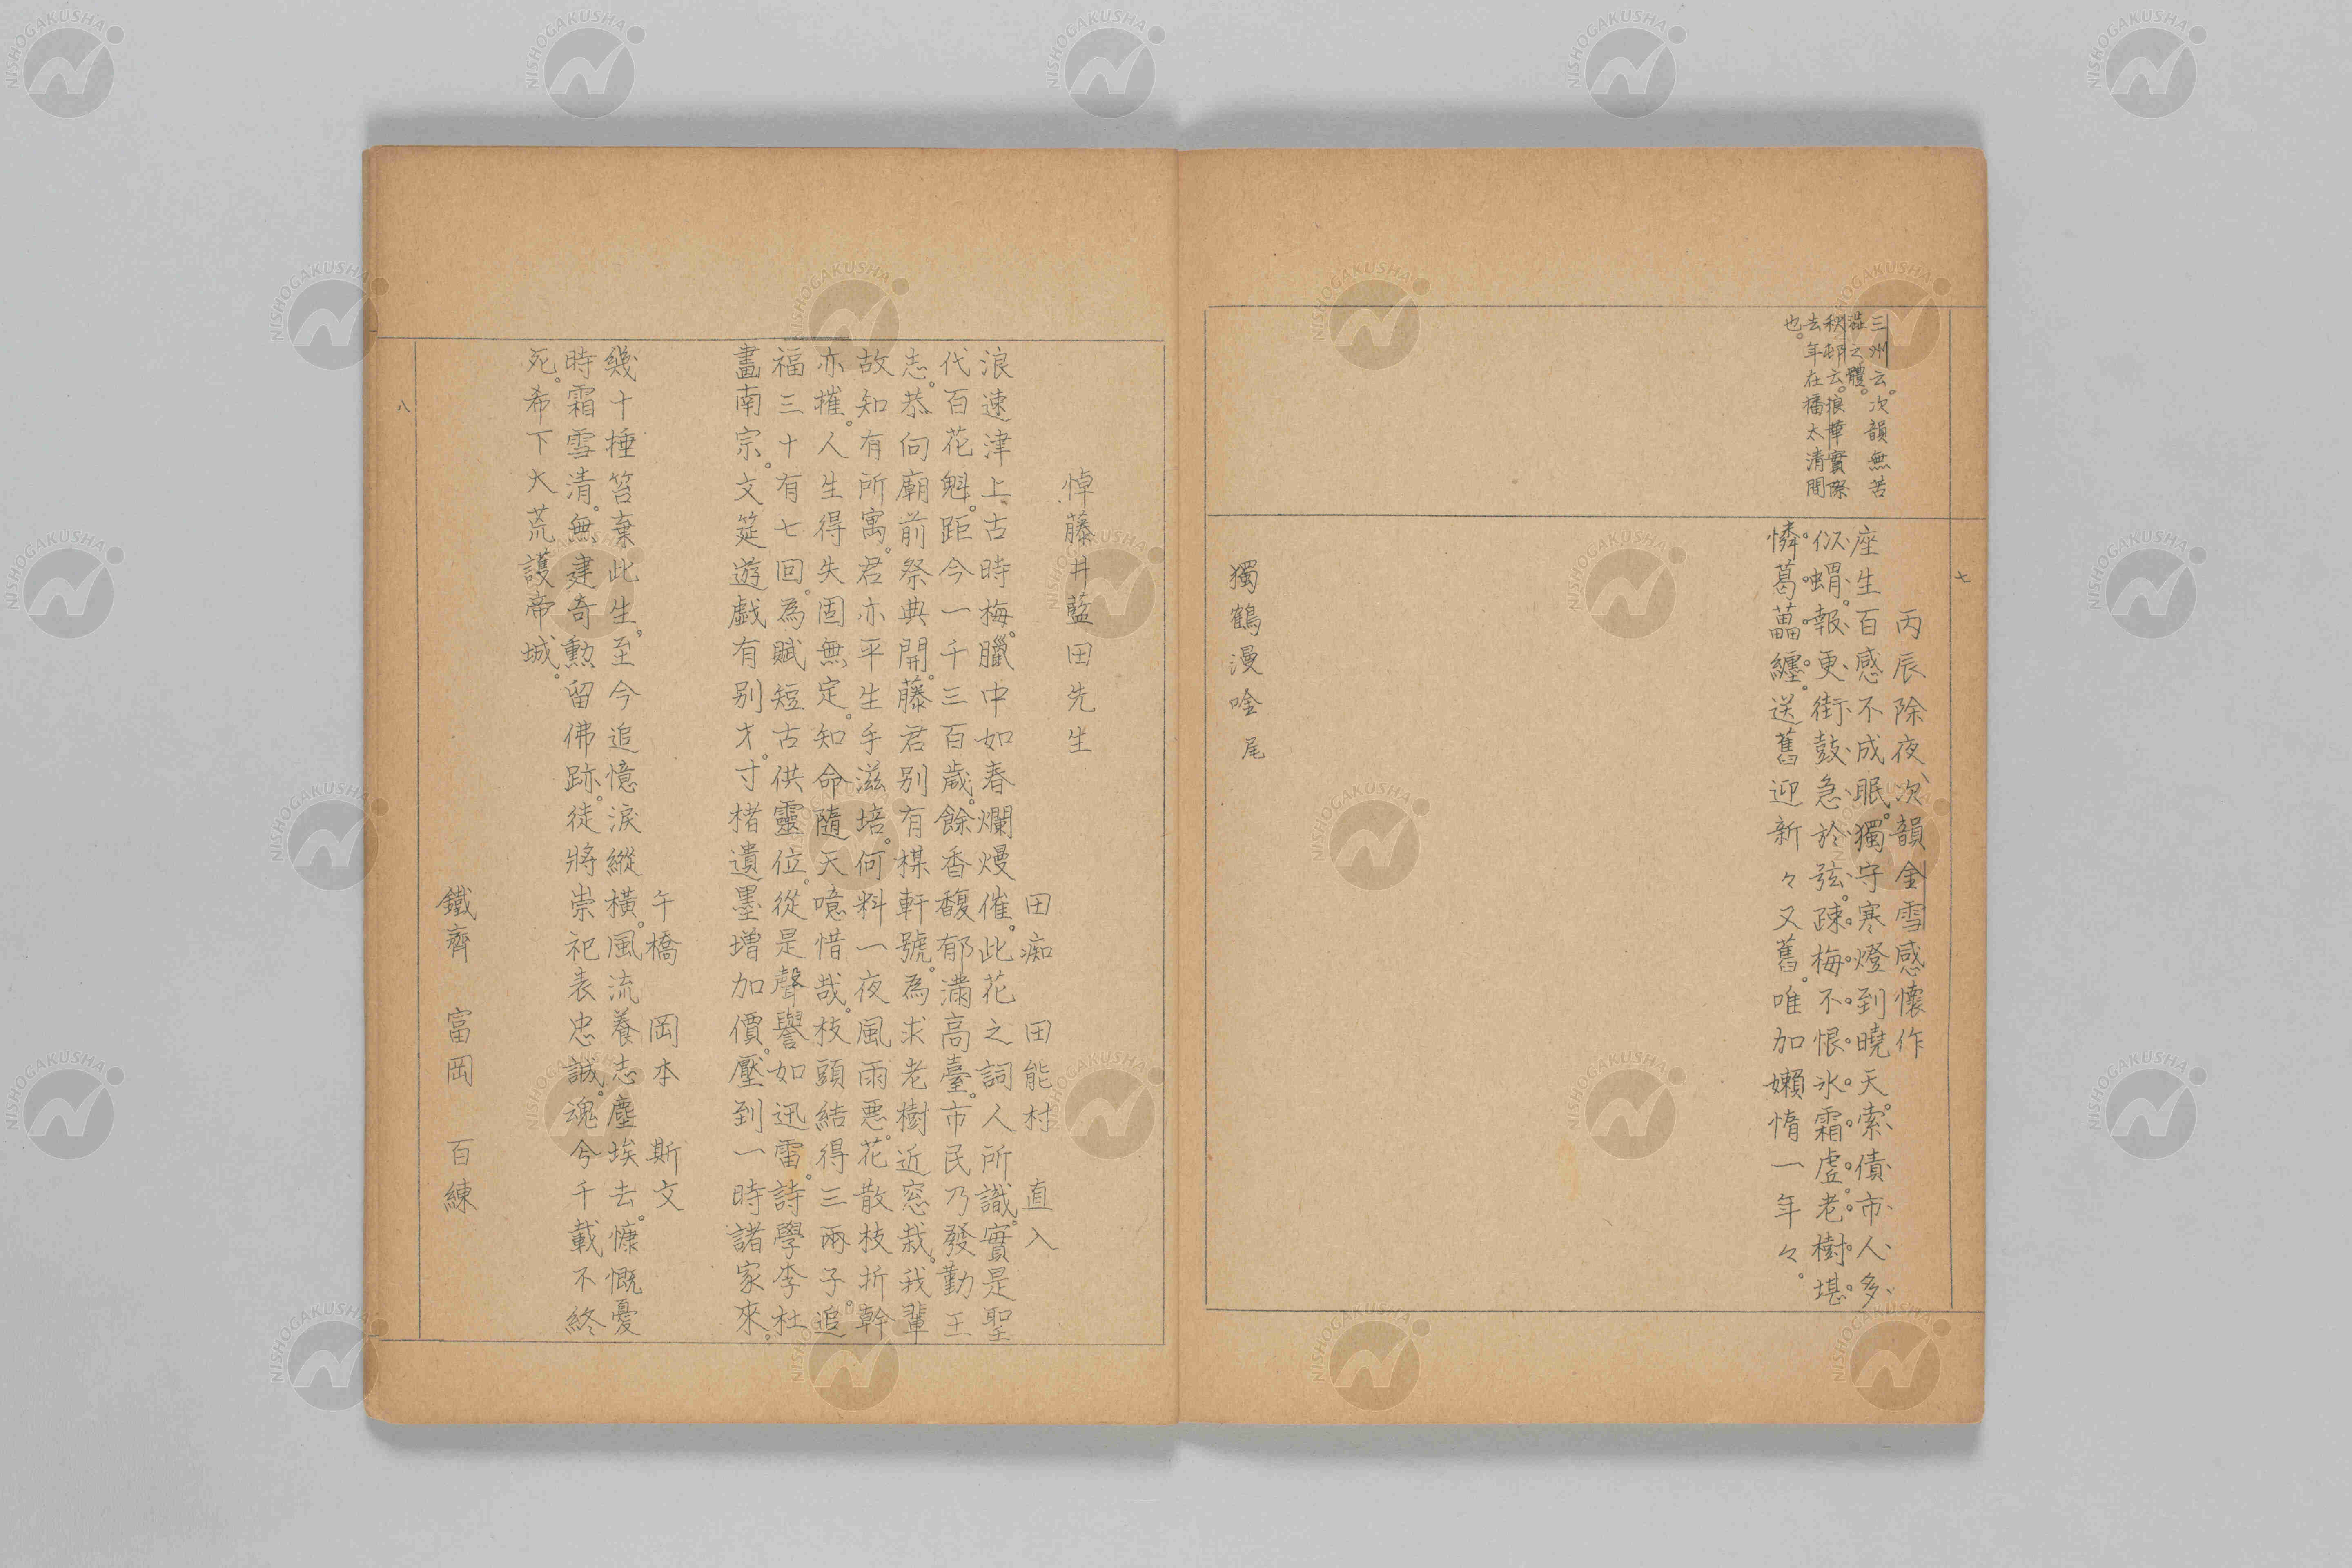 三州云。次韻無苦
澁之體。
秋邨云。浪華實際
去年在播太清間
也。
七
丙辰除夜次韻金雪感懷作
座生百感不成眠。獨守寒燈到曉天。索債市人多
似蝟。報更街鼓急於弦。疎梅不恨氷霜虐。老樹堪
憐葛藟纏。送舊迎新々又舊。唯加嬾惰一年々。
獨鶴漫唫 尾
悼藤井藍田先生
田痴 田能村 直入
浪速津上古時梅。臘中如春爛熳催。此花之詞人所識。實是聖
代百花魁。距今一千三百歳。餘香馥郁滿高臺。市民乃發勤王
志。恭向廟前祭典開。藤君別有棋軒號。為求老樹近窓栽。我輩
故知有所寓。君亦平生手滋培。何料一夜風雨悪。花散枝折幹
亦摧。人生得失固無定。知命隨天噫惜哉。枝頭結得三兩子。追
福三十有七回。為賦短古供靈位。從是聲譽如迅雷。詩學李杜
畫南宗。文筵遊戯有別才。寸楮遺墨増加價。壓到一時諸家來。
午橋 岡本 斯文
幾十捶笞棄此生。至今追憶涙縱橫。風流養志塵埃去。慷慨憂
時霜雪清。無建奇勲留佛跡。徒將崇祀表忠誠。魂兮千載不終
死。希下大荒護帝城。
鐵齊 富岡 百練
八
NISHOGAKUSHA